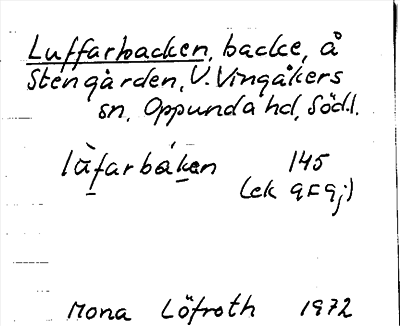 Luffarbacken, backe, å
Stengården, V. Vingåkers
sn, Oppunda hd, Södl.
lùfarbáken 145
(ek 9F9j)
Mona Löfroth 1972